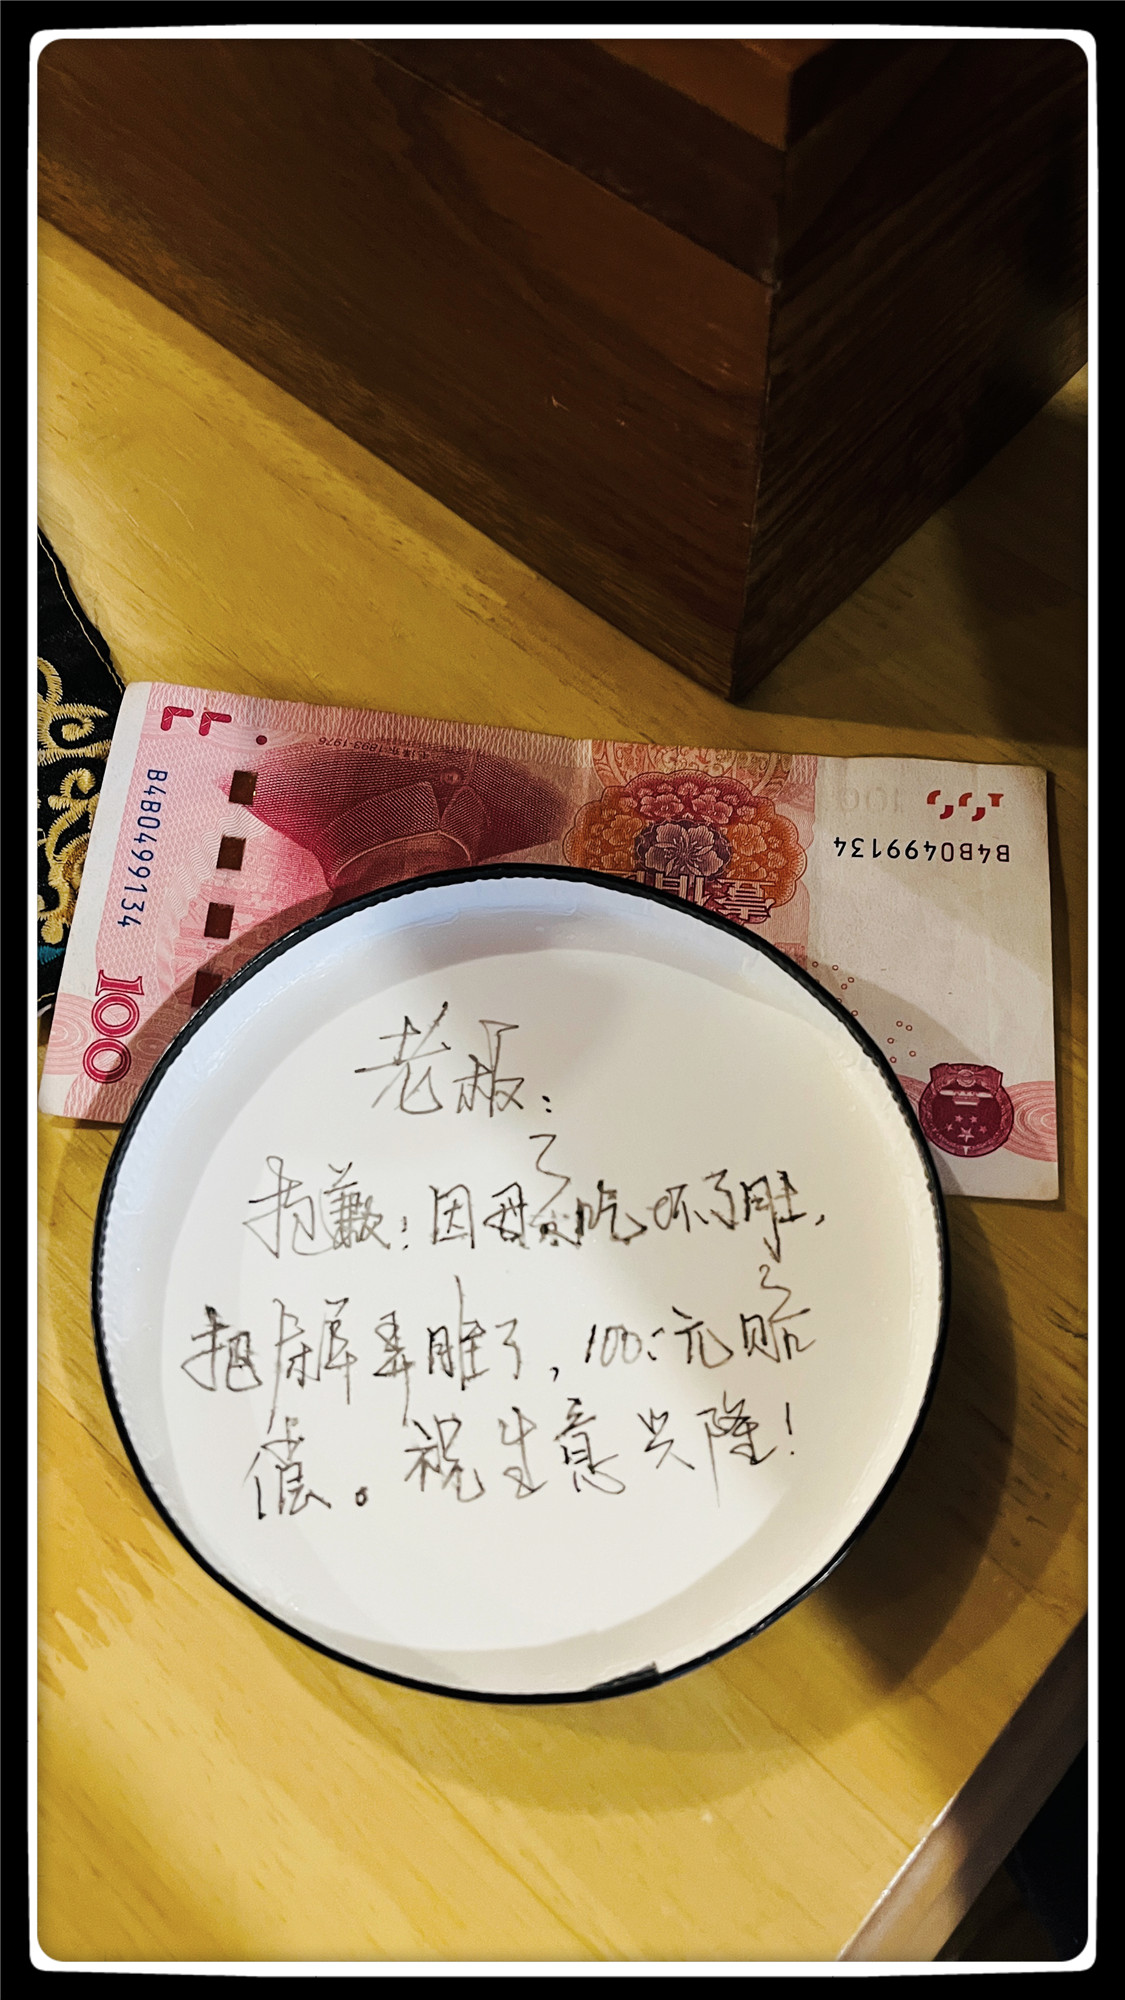 B4B0499134
1893-1976
100
B4B0499134
100
老板:
抱歉:因母吃坏了肚,
把床单弄脏了,100元赔
偿。祝生意兴隆!